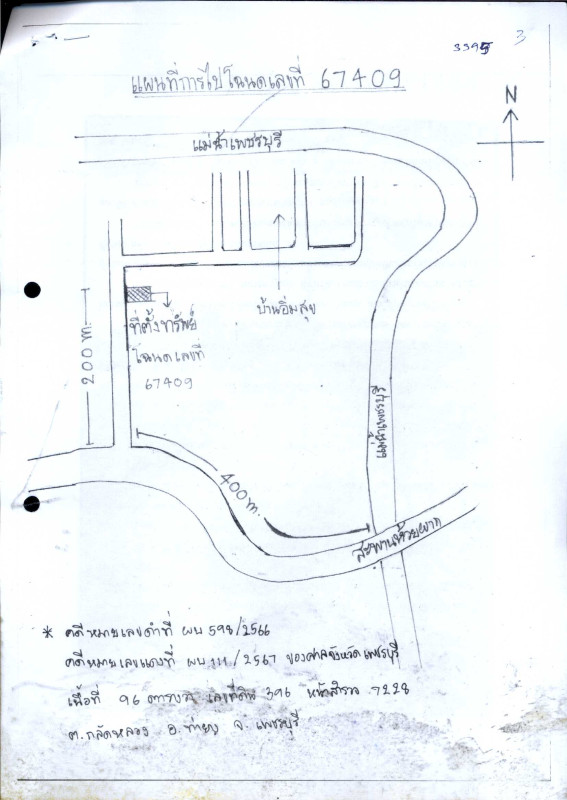 3395 3
แผนที่การไปโฉนดเลขที่ 67409
N
แม่น้ำเพชรบุรี
บ้านอิ่มสุข
ที่ตั้งทรัพย์
โฉนดเลขที่
67409
200 m.
แม่น้ำเพชรบุรี
400 m.
สะพานห้วยผาก
* คดีหมายเลขดำที่ ผบ 598/2566
คดีหมายเลขแดงที่ ผบ 111/2567 ของศาลจังหวัดเพชรบุรี
เนื้อที่ 96 ตารางวา เลขที่ดิน 396 หน้าสำรวจ 7228
ต.กลัดหลวง อ.ท่ายาง จ.เพชรบุรี